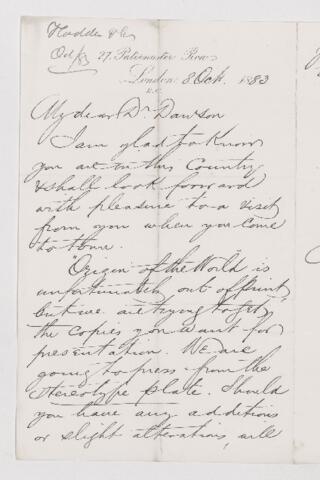 Hodder & Co
Oct/83
27, Paternoster Row,
London 8 Oct. 1883
E.C.
My dear Dr. Dawson
I am glad to know
you are in this Country
& shall look forward
with pleasure to a visit
from you when you come
to town.
"Origin of the World" is
unfortunately out of print
but we are trying to get
the copies you want for
presentation. We are
going to press from the
stereotype plate. Should
you have any additions
or slight alterations, will